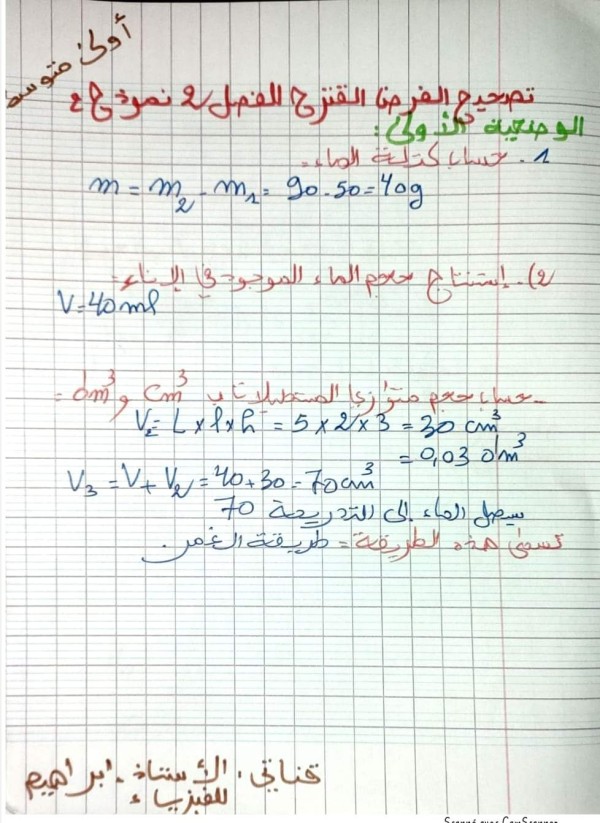 أولى متوسط
تصحيح الفرض المقترح للفصل 2 نموذج 4
الوضعية الأولى:
1- حساب كتلة الماء:
m = m2 - m1 = 90 - 50 = 40g
2)- إستنتاج حجم الماء الموجود في الإناء:
V = 40 ml
- حساب حجم متوازي المستطيلات ب cm³ و dm³ =
V2 = L x l x h = 5 x 2 x 3 = 30 cm³
= 0,03 dm³
V3 = V + V2 = 40 + 30 = 70 cm³
سيصل الماء إلى التدريجة 70
تسمى هذه الطريقة = طريقة الغمر.
قناتي: الأستاذ إبراهيم
للفيزياء
Scanné avec CamScanner